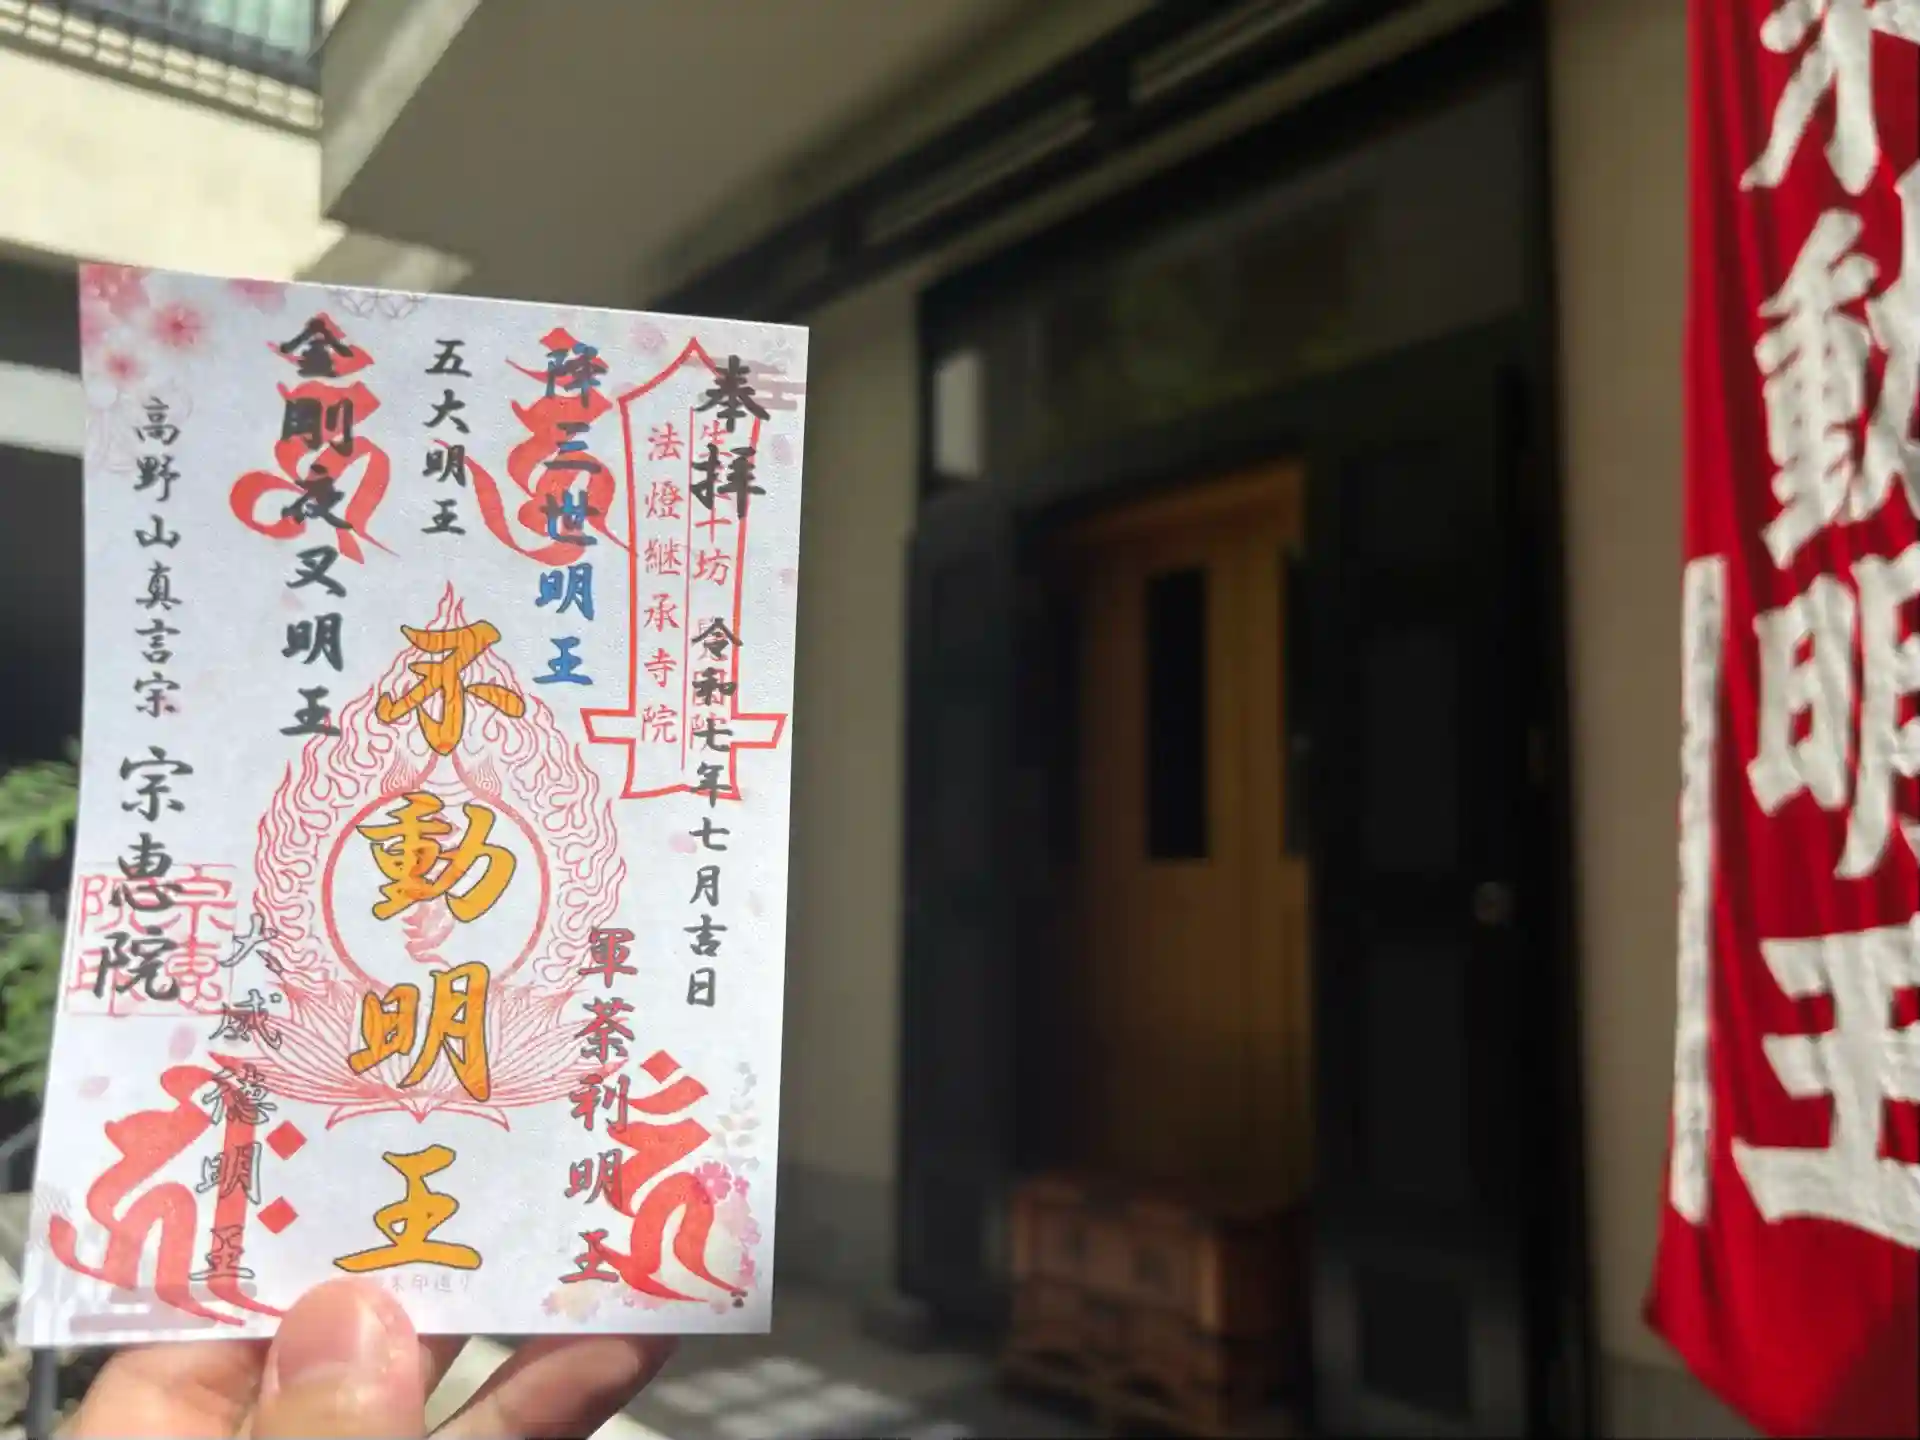 奉拝
令和七年七月吉日
法燈継承寺院
降三世明王
軍荼利明王
五大明王
不動明王
金剛夜叉明王
大威徳明王
高野山真言宗
宗恵院
宗恵院印
動明王